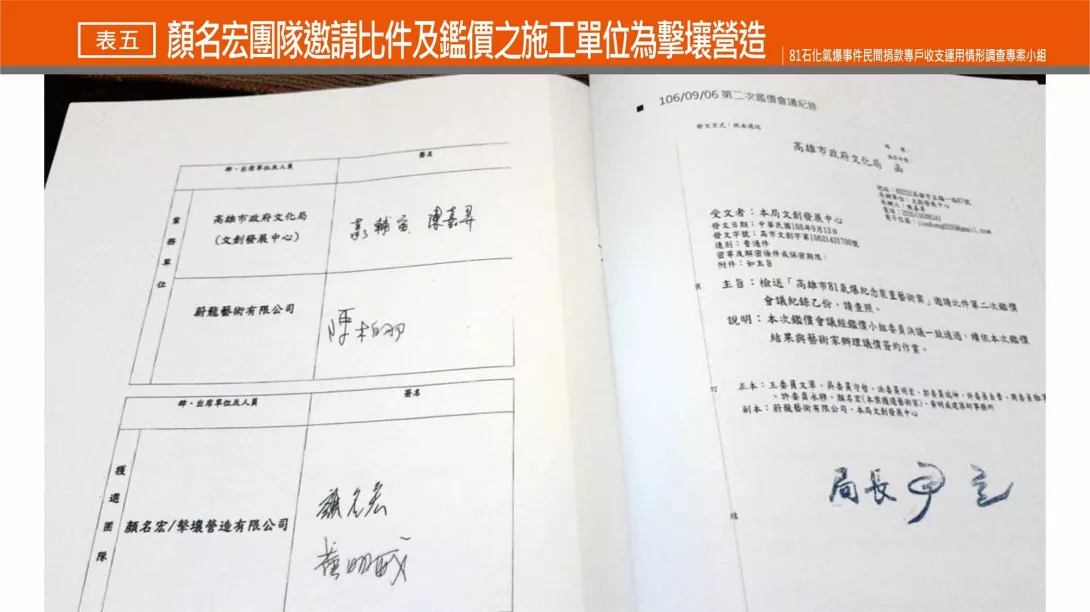 表五 顏名宏團隊邀請比件及鑑價之施工單位為擊壤營造
81石化氣爆事件民間捐款專戶收支運用情形調查專案小組
肆、出席單位及人員 簽名
業務單位
高雄市政府文化局
(文創發展中心)
蔚龍藝術有限公司
陳柏羽
肆、出席單位及人員 簽名
獲選團隊
顏名宏/擊壤營造有限公司
顏名宏
黃明威
106/09/06 第二次鑑價會議紀錄
發文方式:紙本遞送
高雄市政府文化局 函
受文者:本局文創發展中心
發文日期:中華民國106年9月13日
發文字號:高市文創字第10631431700號
速別:普通件
密等及解密條件或保密期限:
附件:如主旨
主旨:檢送「高雄市81氣爆紀念裝置藝術案」邀請比件第二次鑑價
會議紀錄乙份,請查照。
說明:本次鑑價會議經鑑價小組委員決議一致通過,續依本次鑑價
結果與藝術家辦理議價簽約作業。
副本:蔚龍藝術有限公司、本局文創發展中心
局長尹立